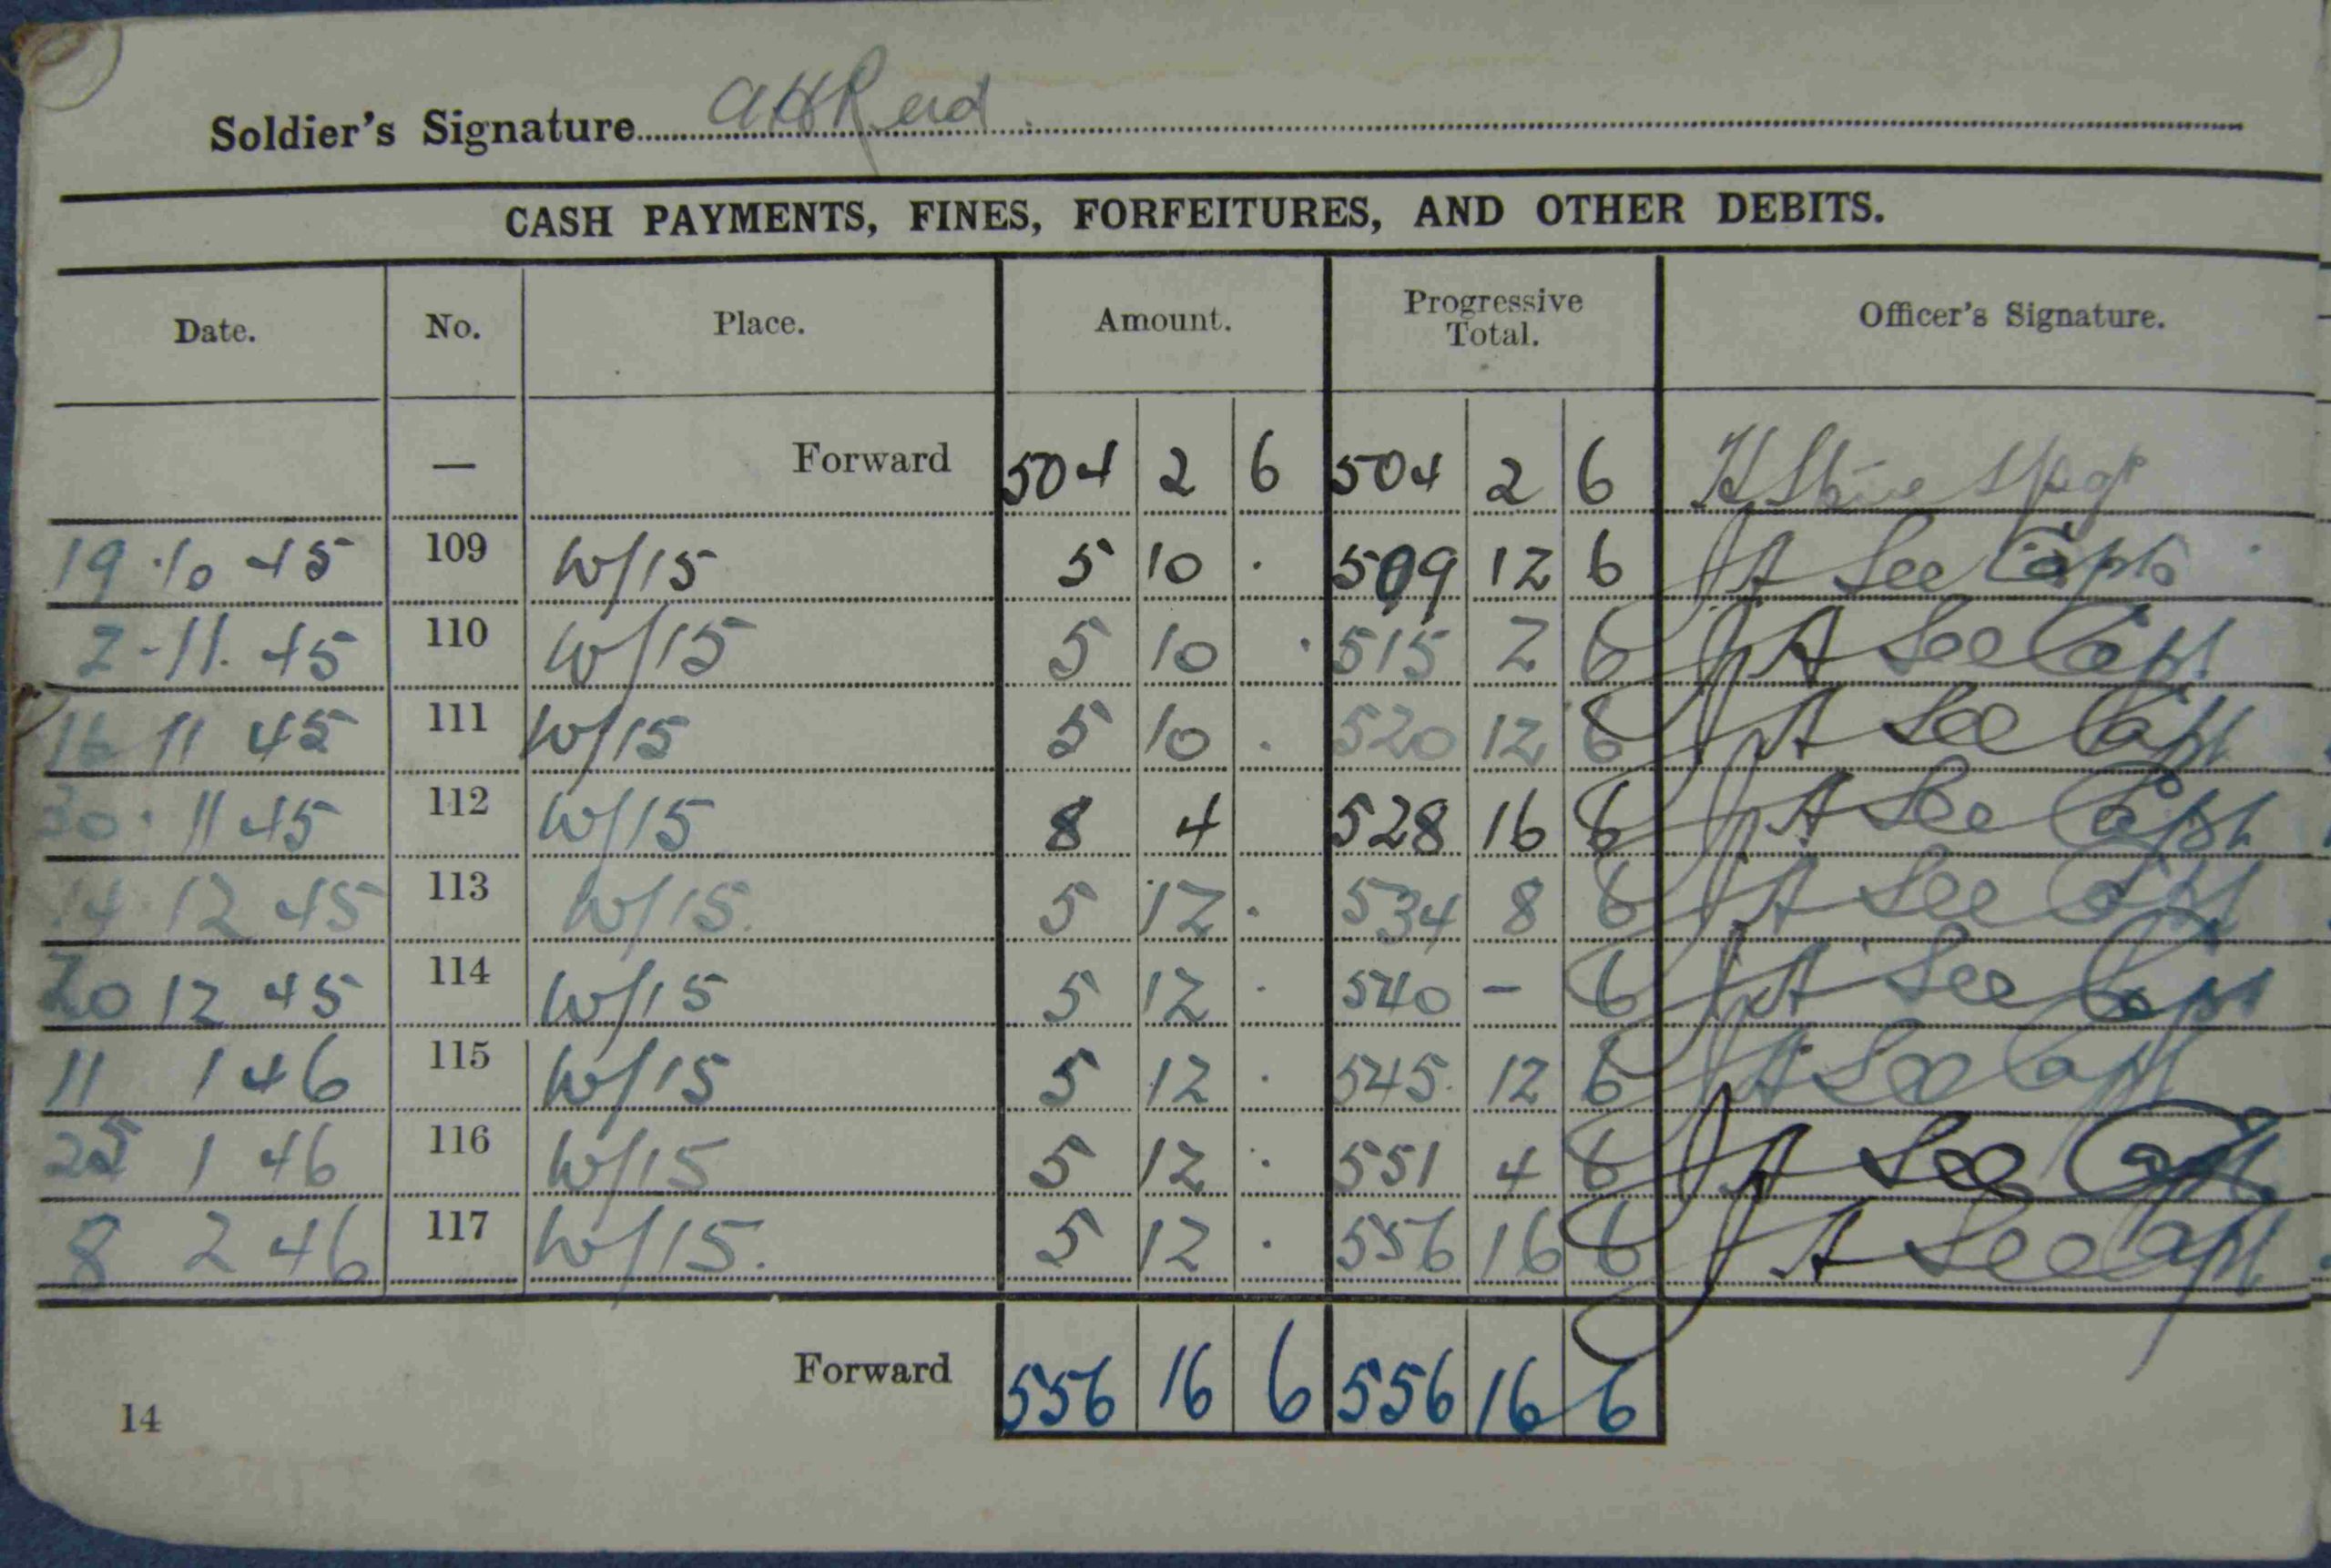 Soldier's Signature AHReid
CASH PAYMENTS, FINES, FORFEITURES, AND OTHER DEBITS.
Date. No. Place. Amount. Progressive Total. Officer's Signature.
— Forward 504 2 6 504 2 6 H
19 · 10 45 109 W/15 5 10 · 509 12 6 JA See Capt
2 - 11. 45 110 W/15 5 10 · 515 2 6 JA See Capt
16 11 45 111 W/15 5 10 · 520 12 6 JA See Capt
30 · 11 45 112 W/15 8 4 528 16 6 JA See Capt
14 · 12 45 113 W/15. 5 12 · 534 8 6 JA See Capt
20 12 45 114 W/15 5 12 · 540 – 6 JA See Capt
11 1 46 115 W/15 5 12 · 545 12 6 JA See Capt
25 1 46 116 W/15 5 12 · 551 4 6 JA See Capt
8 2 46 117 W/15. 5 12 · 556 16 6 JA See Capt
Forward 556 16 6 556 16 6
14